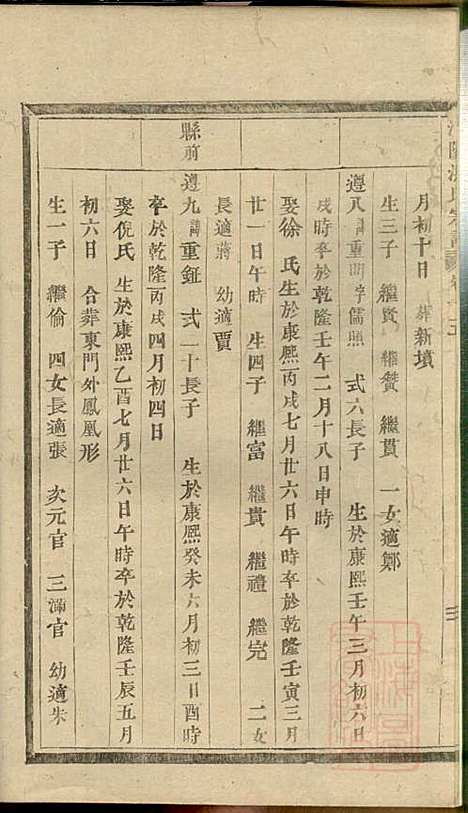 月初十日 葬新墳
生三子 繼賢 繼贊 繼貫 一女適鄭
遵八諱重明字儒照 式六長子 生於康熙壬午三月初六日
戌時卒於乾隆壬午二月十八日申時
娶徐氏生於康熙丙戌七月廿六日午時卒於乾隆壬寅三月
廿一日午時 生四子 繼富 繼貴 繼禮 繼完 二女
長適蔣 幼適賈
縣前
遵九諱重鉦 式一十長子 生於康熙癸未六月初三日酉時
卒於乾隆丙戌四月初四日
娶倪氏生於康熙乙酉七月廿六日午時卒於乾隆壬辰五月
初六日 合葬東門外鳳凰形
生一子 繼倫 四女長適張 次元官 三滿官 幼適朱